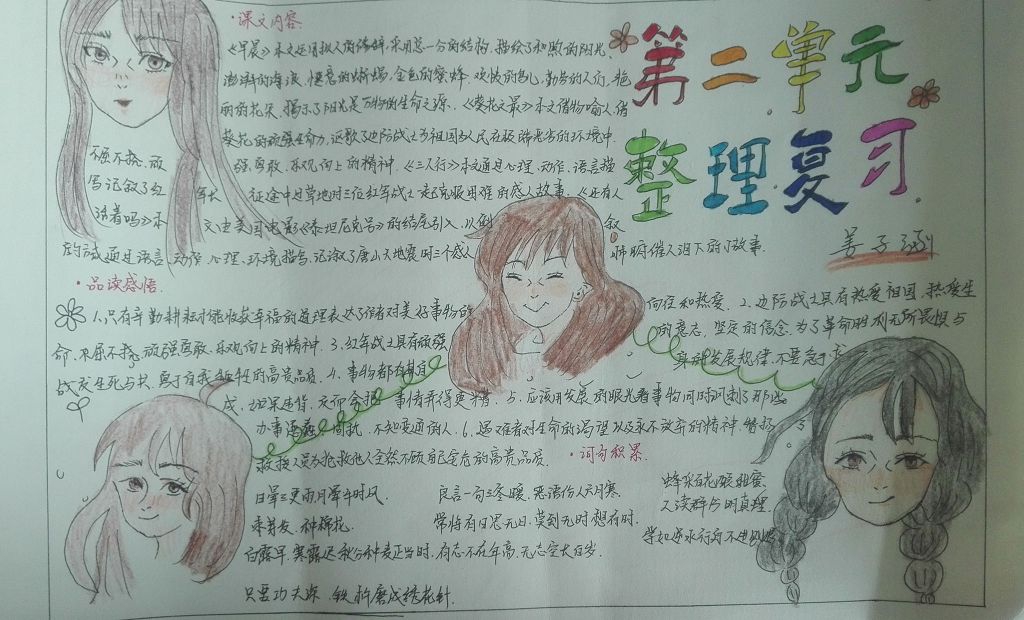 ·课文内容
《早晨》本文运用拟人的修辞,采用总一分的结构,描绘了和煦的阳光、
澎湃的海浪、惬意的蜥蜴、金色的蜜蜂、欢快的鸟儿、勤劳的人们、艳
丽的花朵,揭示了阳光是万物的生命之源。《葵花之最》本文借物喻人,借
葵花的顽强生命力,讴歌了边防战士为祖国为人民在极端恶劣的环境中
不屈不挠、顽强勇敢、乐观向上的精神。《三人行》本文通过心理、动作、语言描
写记叙了红军长征途中过草地时三位红军战士克服困难的感人故事。《还有人
活着吗》本文由美国电影《泰坦尼克号》的结尾引入,以倒叙
的方式通过语言、动作、心理、环境描写,记叙了唐山大地震时三个感人肺腑催人泪下的小故事。
第二单元
整理复习
·品读感悟
1.只有辛勤耕耘才能收获幸福的道理表达了作者对美好事物的向往和热爱。2.边防战士具有热爱祖国,热爱生
命,不屈不挠,顽强勇敢,乐观向上的精神。3.红军战士具有顽强的意志,坚定的信念,为了革命胜利无所畏惧与
战友生死与共,勇于自我牺牲的高贵品质。4.事物都有其自身的发展规律,不要急于求
成,如果违背,反而会把事情弄得更糟。5.应该用发展的眼光看事物同时讽刺了那些
办事固执,不知变通的人。6.遇难者对生命的渴望以及永不放弃的精神,赞扬了
救援人员为抢救他人全然不顾自己安危的高贵品质。
·词句积累
日晕三更雨月晕午时风。
枣芽发,种棉花。
白露早,寒露迟,秋分种麦正当时。
只要功夫深,铁杵磨成绣花针。
良言一句三冬暖,恶语伤人六月寒。
常将有日思无日,莫到无时想有时。
有志不在年高,无志空长百岁。
蜂采百花酿甜蜜,
人读群书明真理。
学如逆水行舟不进则退